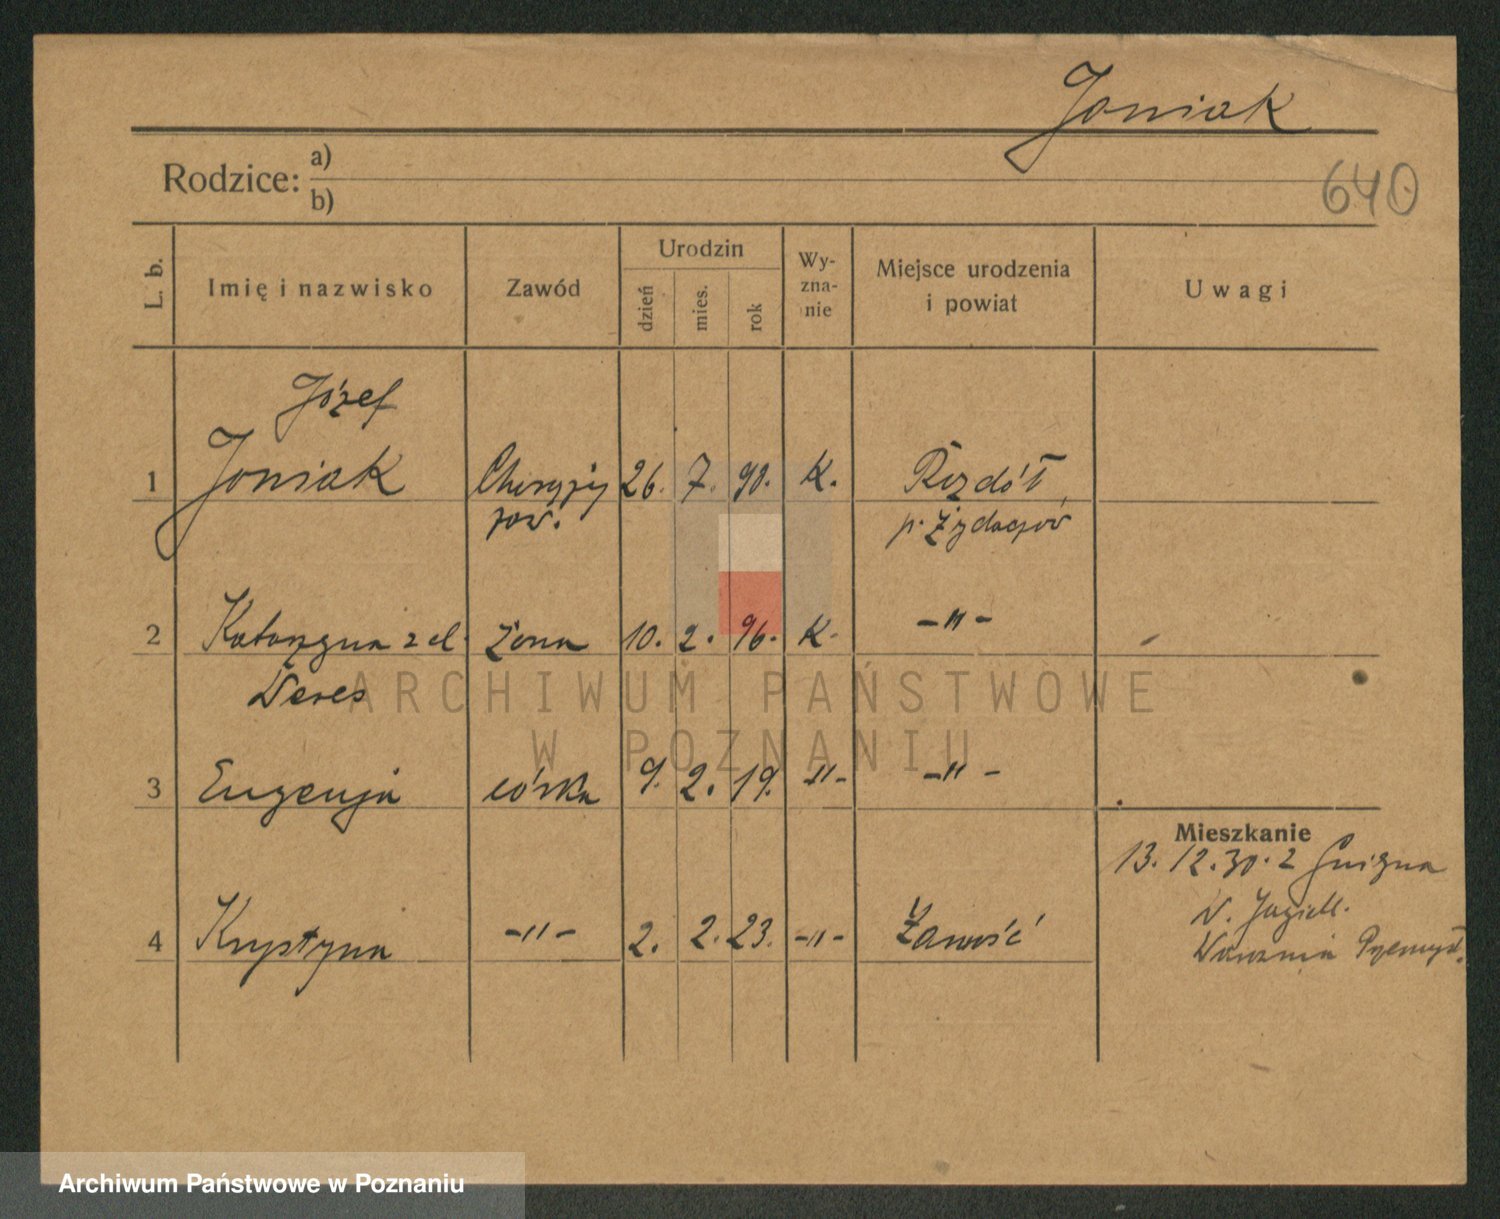 Joniak
640
Rodzice: a)
b)
L. b.
Imię i nazwisko
Zawód
Urodzin
dzień
mies.
rok
Wy-
zna-
nie
Miejsce urodzenia
i powiat
Uwagi
Józef
1 Joniak Chorąży 26. 7. 90. K. Rozdół
zaw. p. Żydaczów
2 Katarzyna z d. żona 10. 2. 96. K. -"-
Deres
3 Eugenja córka 9. 2. 19. -"- -"-
Mieszkanie
13.12.30. z Gniezna
4 Krystyna -"- 2. 2. 23. -"- Zamość
W. Jagiell.
ARCHIWUM PAŃSTWOWE
W POZNANIU
Archiwum Państwowe w Poznaniu